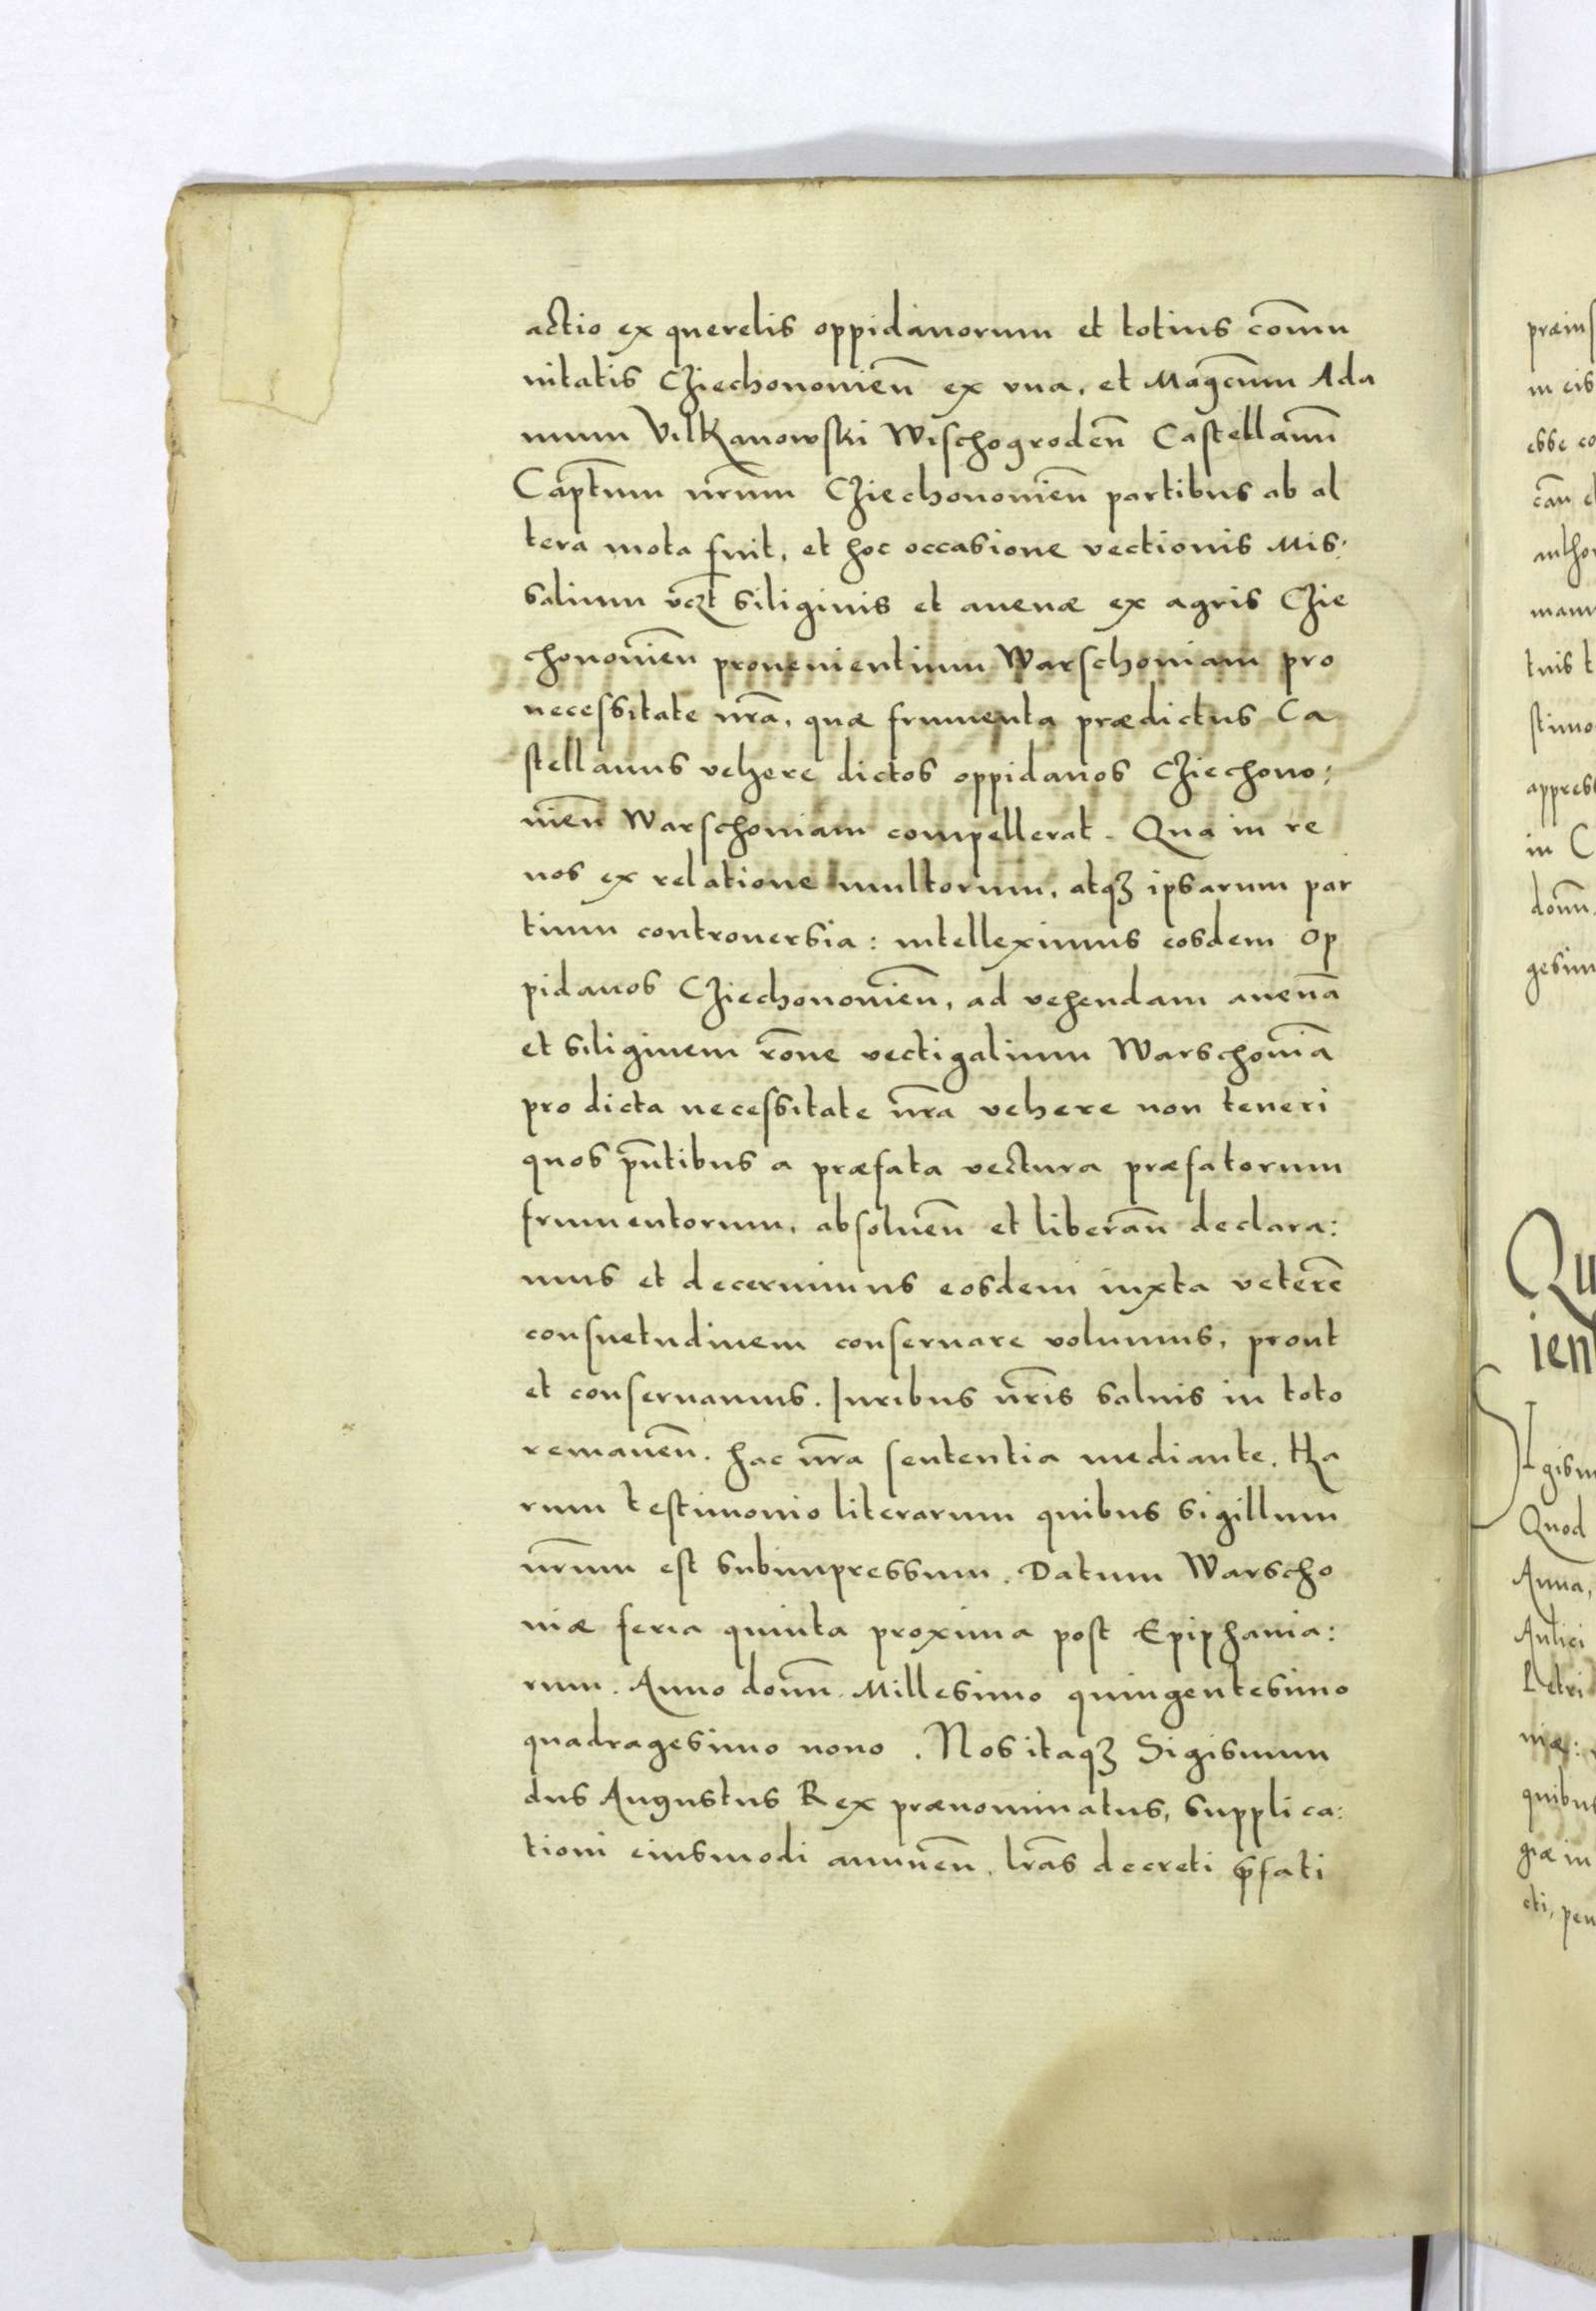 actio ex querelis oppidanorum et totius com̄u
nitatis Cziechonovien̄ ex vna, et Maḡcum Ada
mum Vilkanowski Wischogroden̄ Castellanū
Cap̄tum nr̄um Cziechonovien̄ partibus ab al
tera mota fuit, et hoc occasione vectionis Mis:
salium vcz̄t siliginis et auenæ ex agris Czie
chonovien̄ prouenientium Warschouiam pro
necessitate nr̄a, quæ frumenta prædictus Ca
stellanus vehere dictos oppidanos Cziechono:
uien̄ Warschouiam compellerat. Qua in re
nos ex relatione multorum, atqꝫ ipsarum par
tium controuersia: intelleximus eosdem Op
pidanos Cziechonovien̄, ad vehendam auenā
et siliginem rōne vectigalium Warschouiā
pro dicta necessitate nr̄a vehere non teneri
quos pn̄tibus a præfata vectura præfatorum
frumentorum, absoluen̄ et liberan̄ declara:
mus et decernimus eosdem iuxta veterē
consuetudinem conseruare volumus, prout
et conseruamus. Iuribus nr̄is saluis in toto
remanen̄. hac nr̄a sententia mediante. Ha
rum testimonio literarum quibus sigillum
nr̄um est subimpressum. Datum Warscho
uiæ feria quinta proxima post Epiphania:
rum. Anno domn̄. Millesimo quingentesimo
quadragesimo nono. Nos itaqꝫ Sigismun
dus Augustus Rex prænominatus, supplica:
tioni eiusmodi annuen̄. lr̄as decreti p̄fati
præins
in eis
esse co
can̄ d
autho
manu
tuis t
stimo
appres
in C
domn̄.
gesim
Qu
ient
Sigism
Quod
Anna,
Aulici
Petri
niæ:
quibus
giæ in
cti, pen